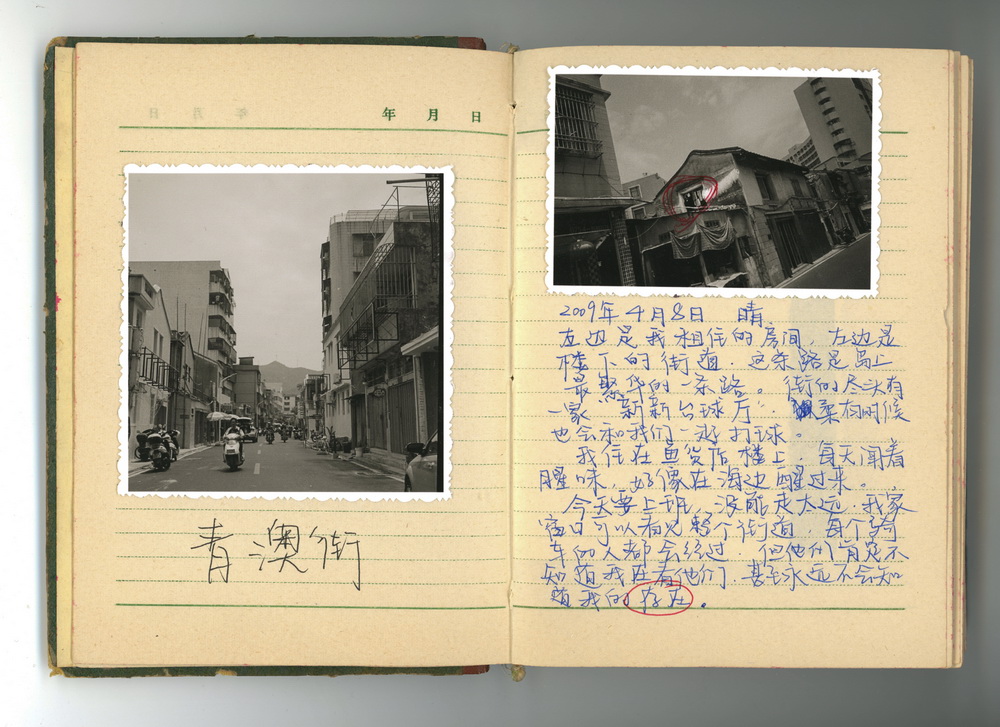 年 月 日
青澳街
2009年4月8日 晴
左边是我租住的房间,左边是
楼下的街道.这条路是岛上
最繁华的一条路。街的尽头有
一家“新新台球厅”.柔有时候
也会和我们一起打球。
我住在鱼货店楼上.每天闻着
腥味.好像在海边醒过来.
今天要上班,没能走太远.我家
窗口可以看见整个街道.每个骑
车的人都会经过.但他们肯定不
知道我在看他们.甚至永远不会知
道我的存在.